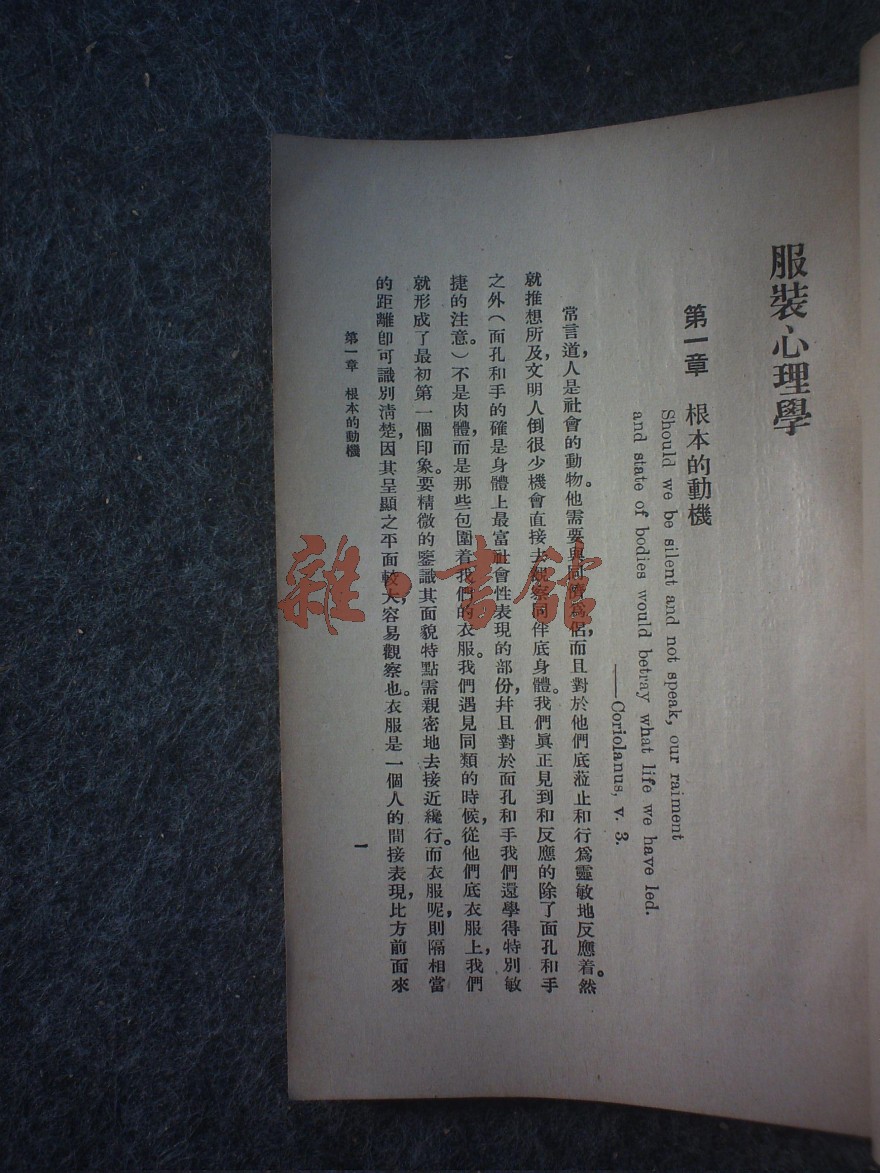 服裝心理學
第一章 根本的動機
Should we be silent and not speak, our raiment
and state of bodies would betray what life we have led.
——Coriolanus, v. 3.
常言道，人是社會的動物。他需要與同儕爲侶，而且對於他們底蒞止和行爲靈敏地反應着。然
就推想所及，文明人倒很少機會直接去觀察同伴底身體。我們眞正見到和反應的除了面孔和手
之外（面孔和手的確是身體上最富社會性表現的部份，幷且對於面孔和手我們還學得特別敏
捷的注意。）不是肉體，而是那些包圍着我們的衣服。我們遇見同類的時候，從他們底衣服上，我們
就形成了最初第一個印象。要精微的鑒識其面貌特點需親密地去接近纔行。而衣服呢，則隔相當
的距離卽可識別清楚，因其呈顯之平面較大，容易觀察也。衣服是一個人的間接表現，比方前面來
第一章 根本的動機
一
雜·書館